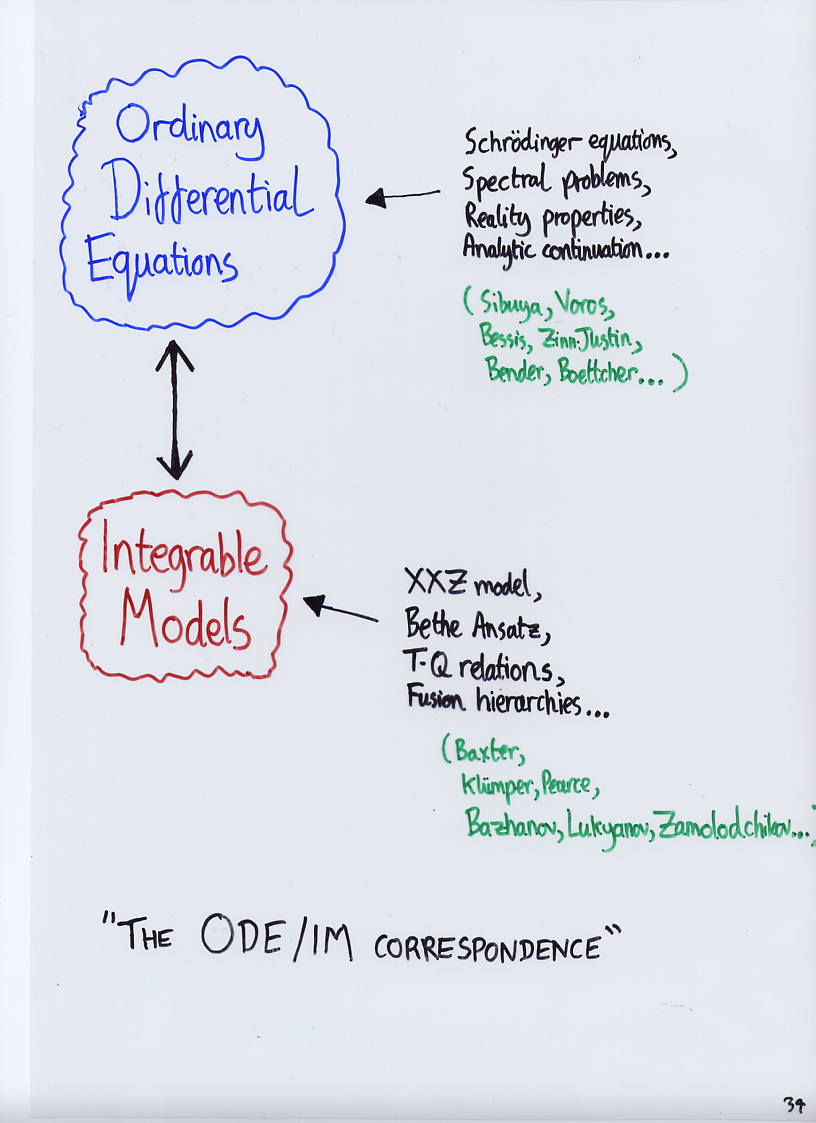 Ordinary
Differential
Equations
Schrödinger equations,
Spectral problems,
Reality properties,
Analytic continuation...
(Sibuya, Voros,
Bessis, Zinn-Justin,
Bender, Boettcher... )
Integrable
Models
XXZ model,
Bethe Ansatz,
T-Q relations,
Fusion hierarchies...
(Baxter,
Klümper, Pearce,
Bazhanov, Lukyanov, Zamolodchikov...)
"THE ODE/IM CORRESPONDENCE"
34